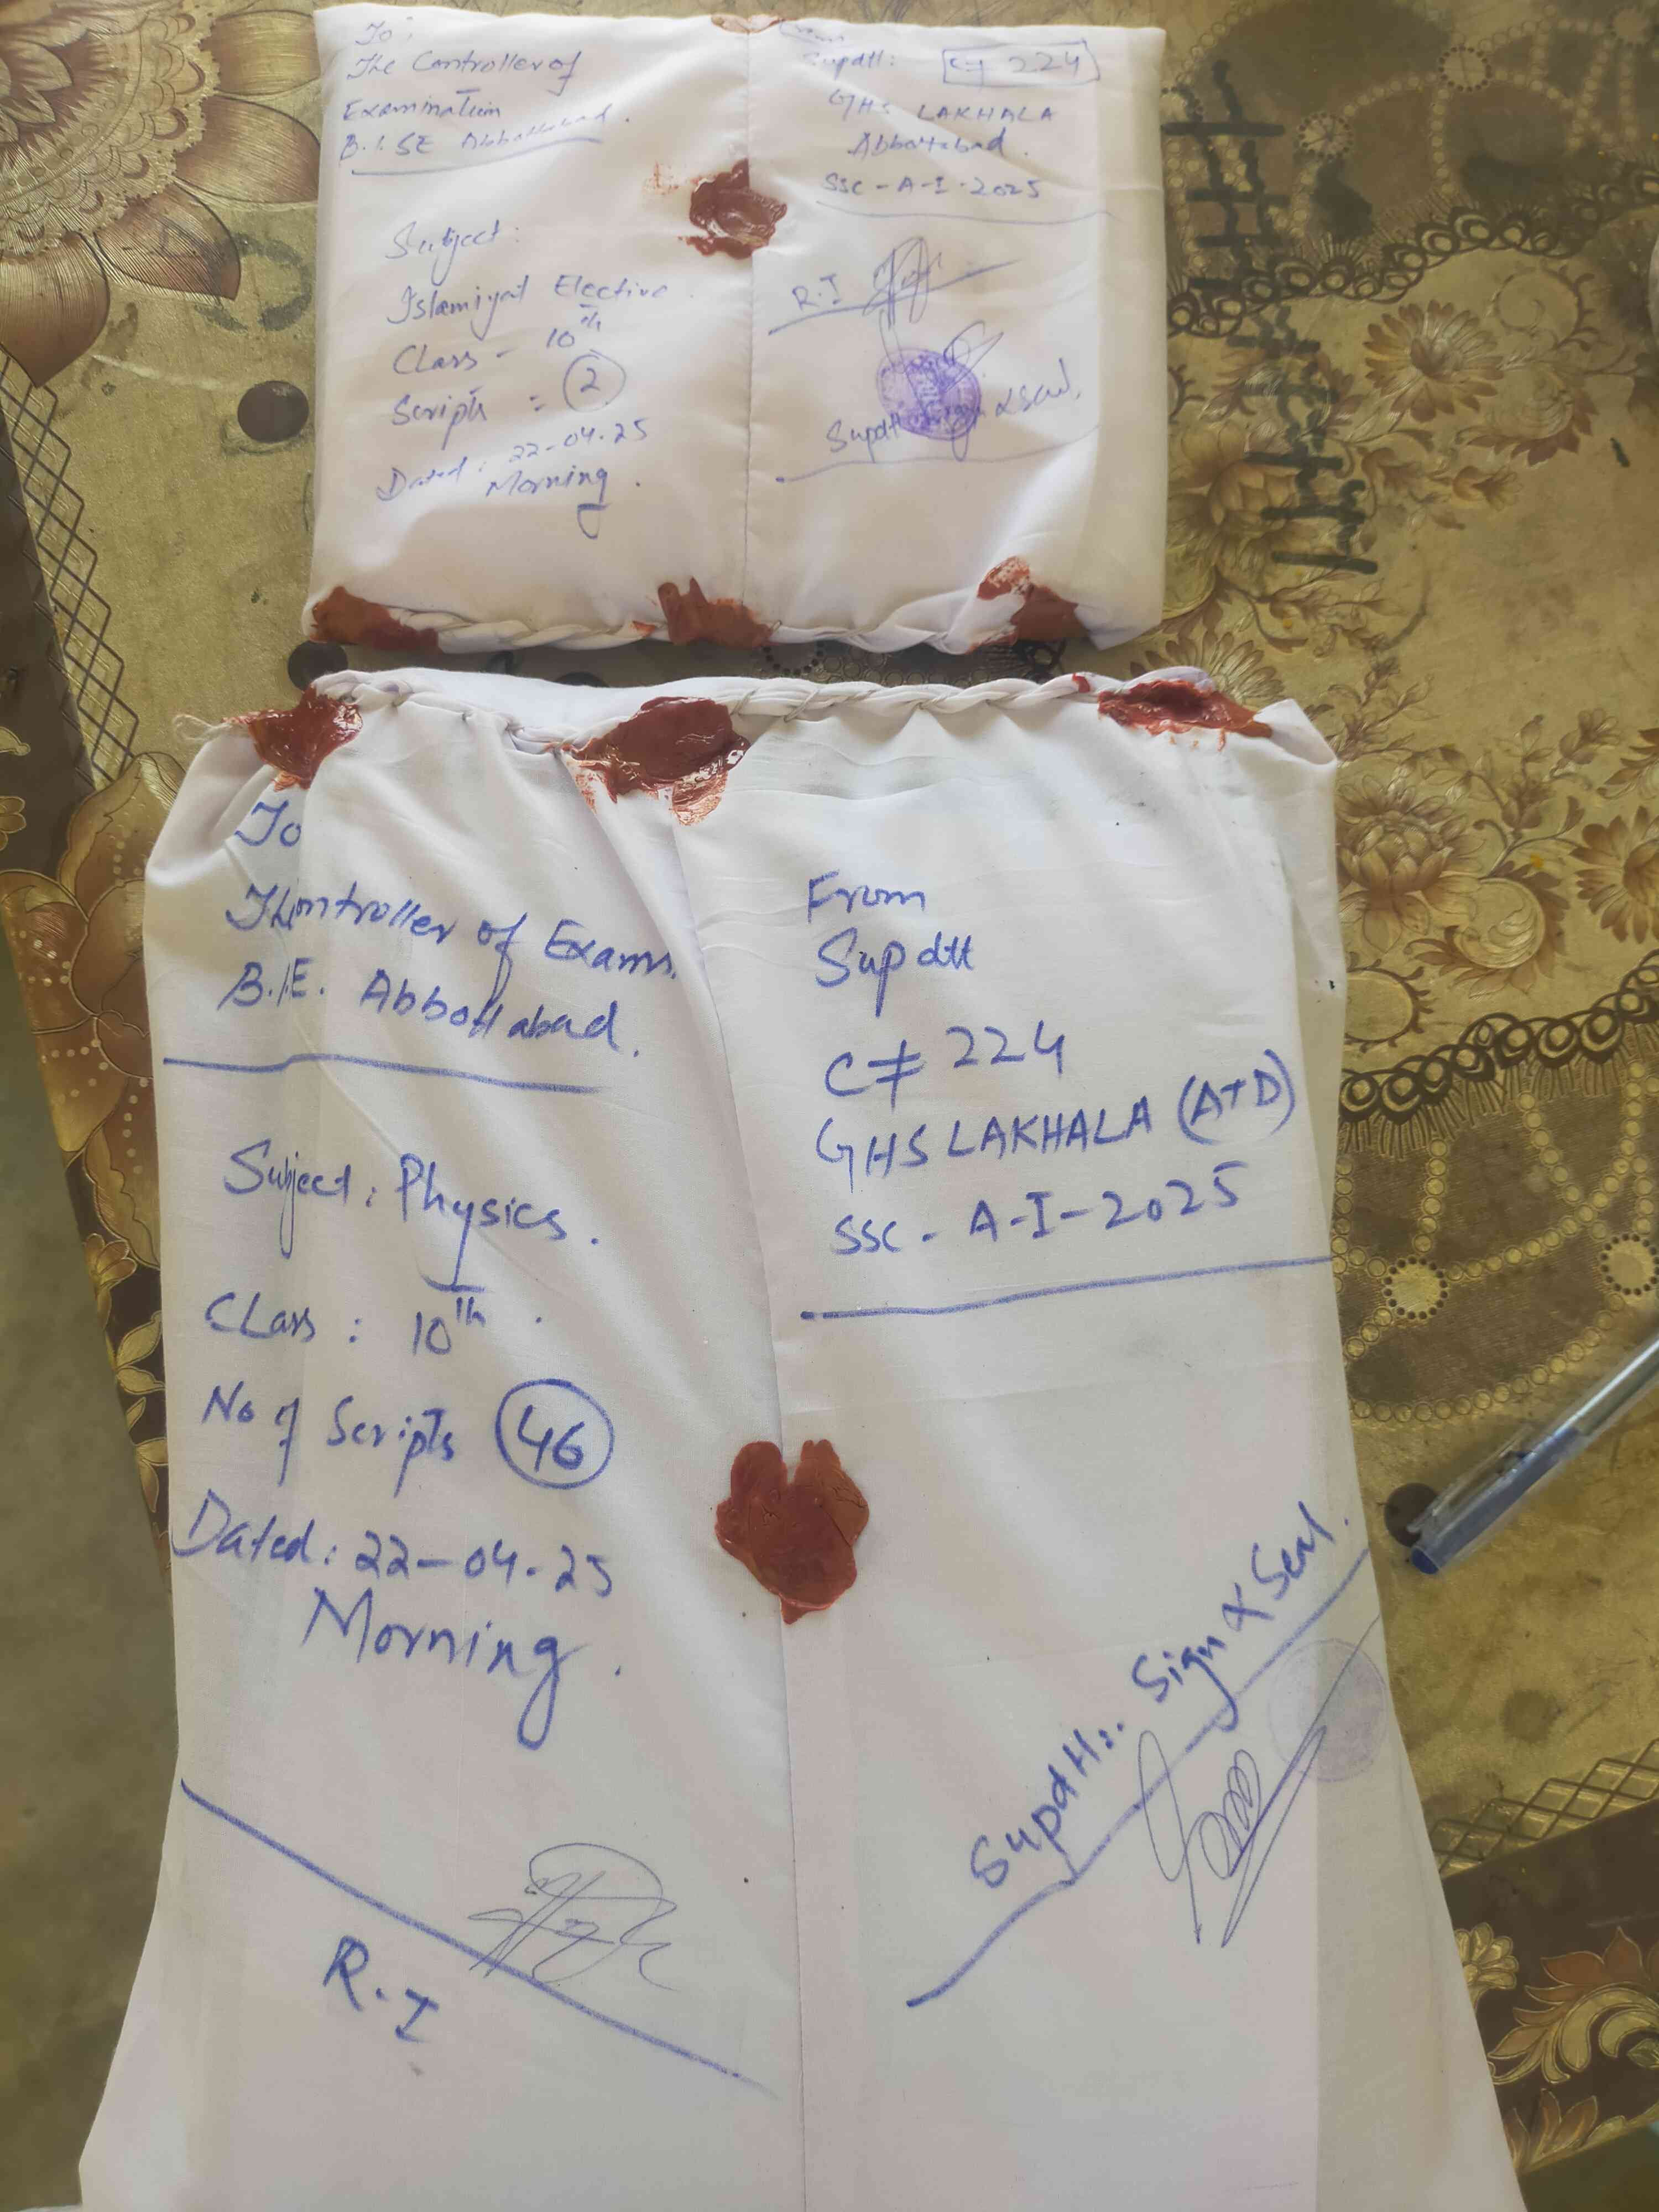 To:
The Controller of
Examination
B.I.SE Abbottabad.
Subject:
Islamiyat Elective.
Class - 10th
Scripts = 2
Dated: 22-04-25
Morning.
Supdtt: C≠ 224
GHS LAKHALA
Abbottabad.
SSC-A-I-2025
R.I
Supdtt Sign & Seal.
To
The ontroller of Exams.
B.I.E. Abbottabad.
Subject: Physics.
CLass: 10th.
No of Scripts 46
Dated: 22-04-25
Morning.
R.I
From
Supdtt
C≠ 224
GHS LAKHALA (ATD)
SSC- A-I-2025
Supdtt:. Sign & Seal.